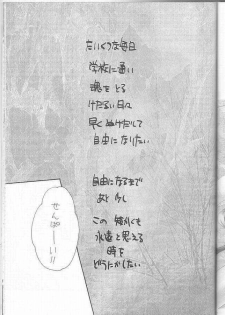 たいくつな毎日
学校に通い
魂をとる
けだるい日々
早くぬけだして
自由になりたい
自由になるまで
あと少し
この
永遠と思える
時を
どうにかしたい
せんぱーい!!